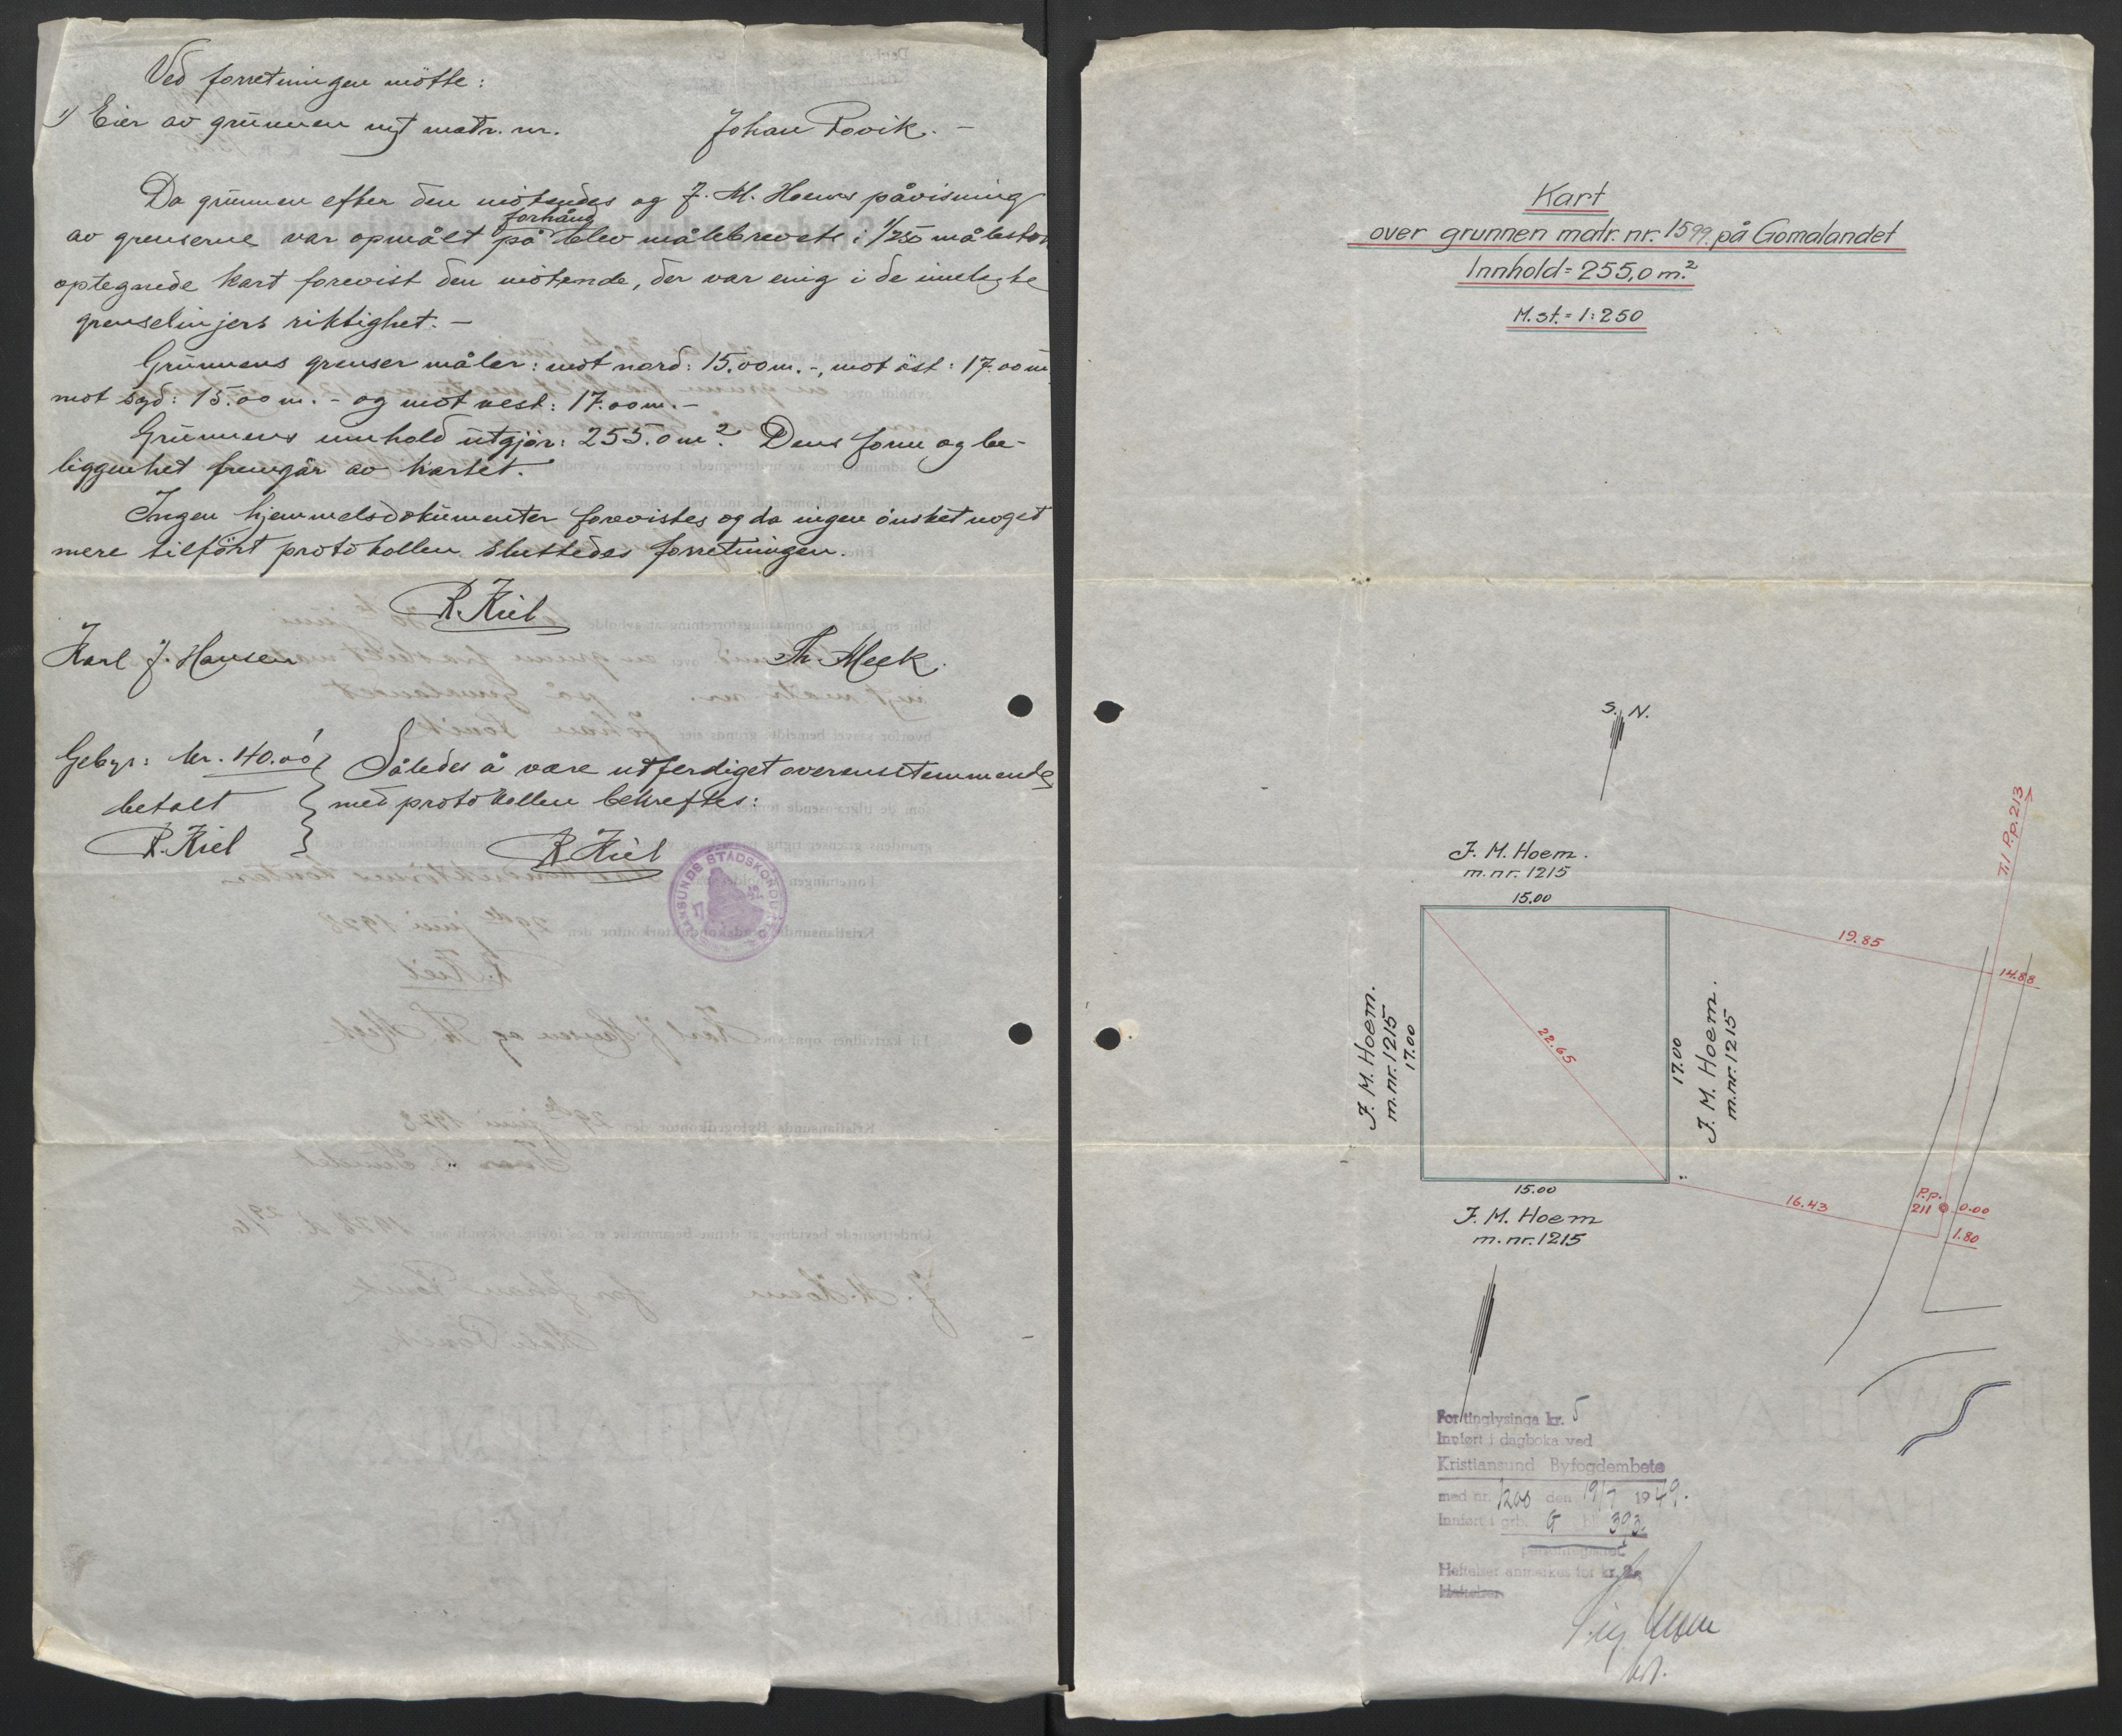 Ved forretningen mötte:
1) Eier av grunnen nyt matr. nr. Johan Rovik. –
Da grunnen efter den mötendes og J. M. Hoems påvisning
av grenserne var opmålt på forhånd blev målebrevets i 1/250 målestok
optegnede kart forevist den mötende, der var enig i de innlagte
grenselinjers riktighet. –
Grunnens grenser måler: mot nord: 15.00 m. -, mot öst: 17.00 m
mot syd: 15.00 m. - og mot vest: 17.00 m. –
Grunnens innhold utgjör: 255.0 m². Dens form og be-
liggenhet fremgår av kartet.
Ingen hjemmelsdokumenter forevistes og da ingen önsket noget
mere tilfört protokollen sluttedes forretningen.
R. Kiel
Karl J. Hansen Th. Meek.
Gebyr: kr. 40.00 Således å være utferdiget overensstemmende
betalt med protokollen bekreftes:
R. Kiel R Kiel
KRISTIANSUNDS STADSKONDUKTØR
Kart
over grunnen matr. nr. 1599. på Gomalandet
Innhold = 255,0 m.²
M.st. = 1:250
S. N.
Til P.p. 213
J. M. Hoem.
m. nr. 1215
15.00
19.85
14.88
J. M. Hoem.
m. nr. 1215
17.00
22.65
17.00
J. M. Hoem.
m. nr. 1215
15.00
J. M. Hoem
m. nr. 1215
16.43
P.p.
211
0.00
1.80
For tinglysinga kr. 5
Innført i dagboka ved
Kristiansund Byfogdembete
med nr. 1200 den 19/7 1949.
Innført i grb. G bl. 393.
Heftelser anmerkes for kr.
Heftelser